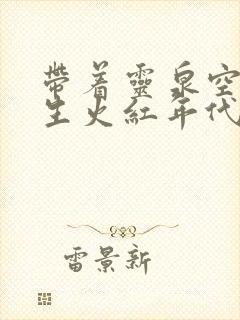 帶着靈泉空
生火紅年代
雷景新